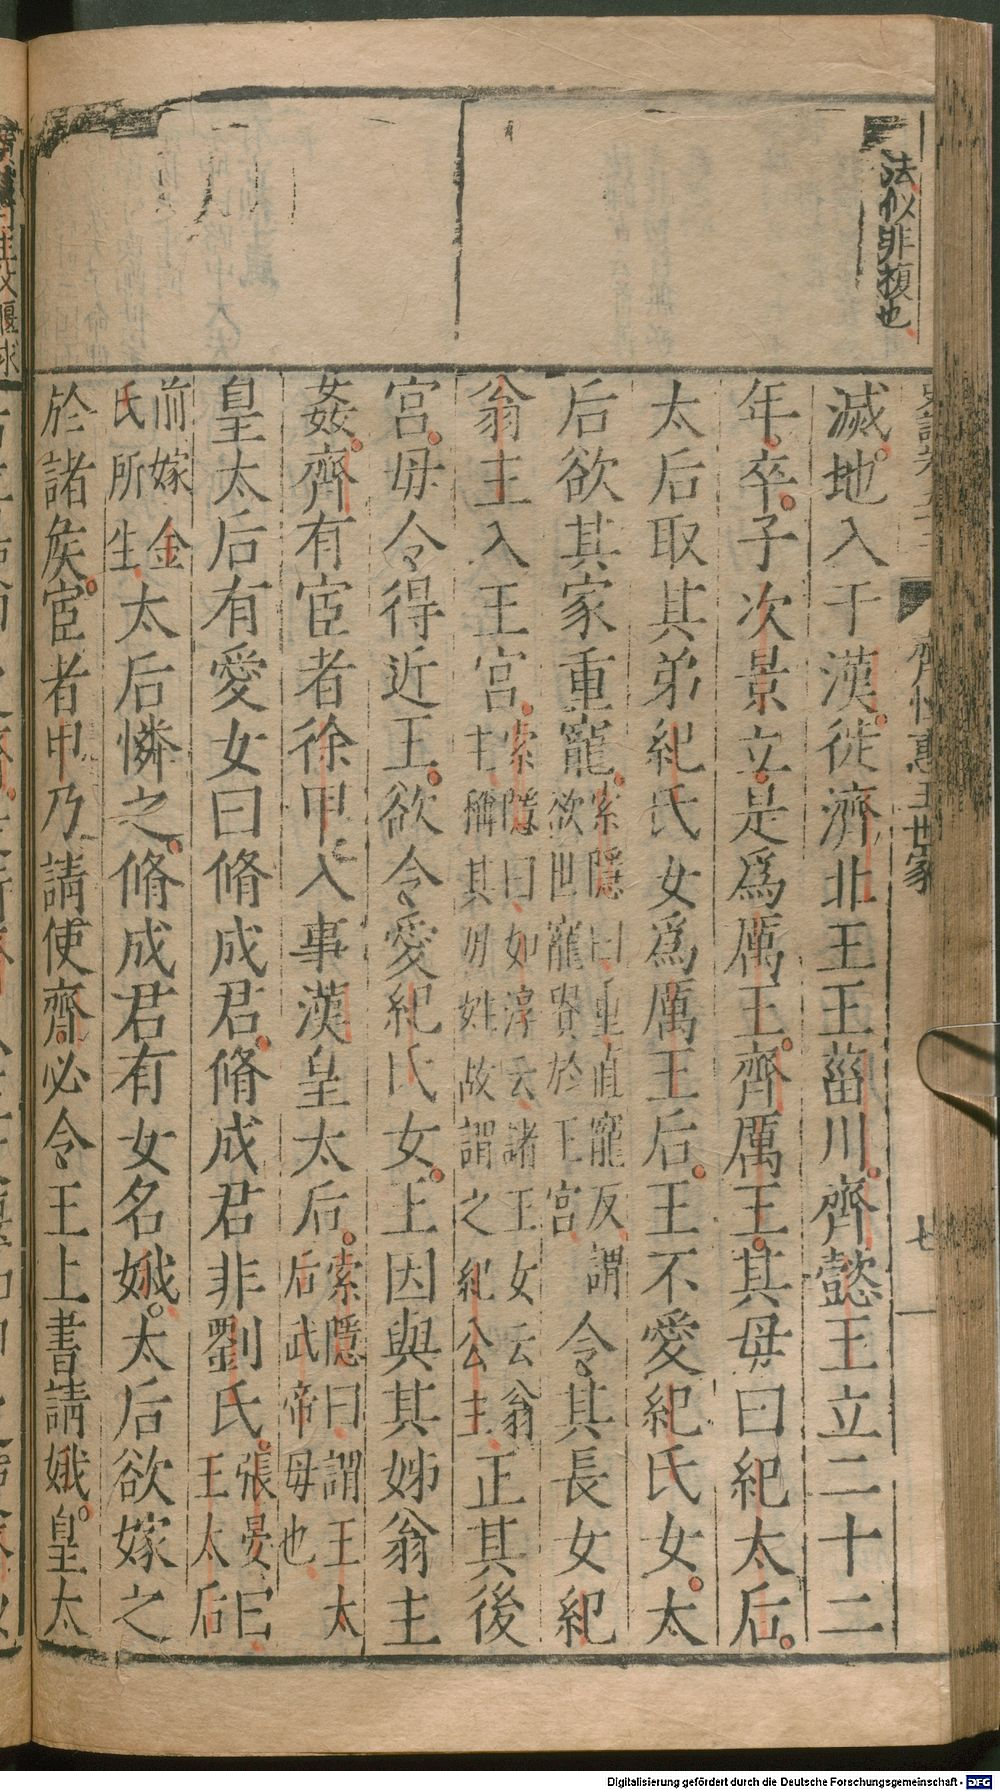 法似非複也
史記卷五十二
齊悼惠王世家
七
滅地入于漢徙濟北王王菑川齊懿王立二十二
年卒子次景立是爲厲王齊厲王其母曰紀太后
太后取其弟紀氏女爲厲王后王不愛紀氏女太
后欲其家重寵索隱曰重直寵反謂欲世寵貴於王宮令其長女紀
翁主入王宮索隱曰如淳云諸王女云翁主稱其母姓故謂之紀公主正其後
宮毋令得近王欲令愛紀氏女王因與其姊翁主
姦齊有宦者徐甲入事漢皇太后索隱曰謂王太后武帝母也
皇太后有愛女曰脩成君脩成君非劉氏張晏曰王太后
前嫁金氏所生太后憐之脩成君有女名娥太后欲嫁之
於諸矦宦者甲乃請使齊必令王上書請娥皇太
Digitalisierung gefördert durch die Deutsche Forschungsgemeinschaft - DFG